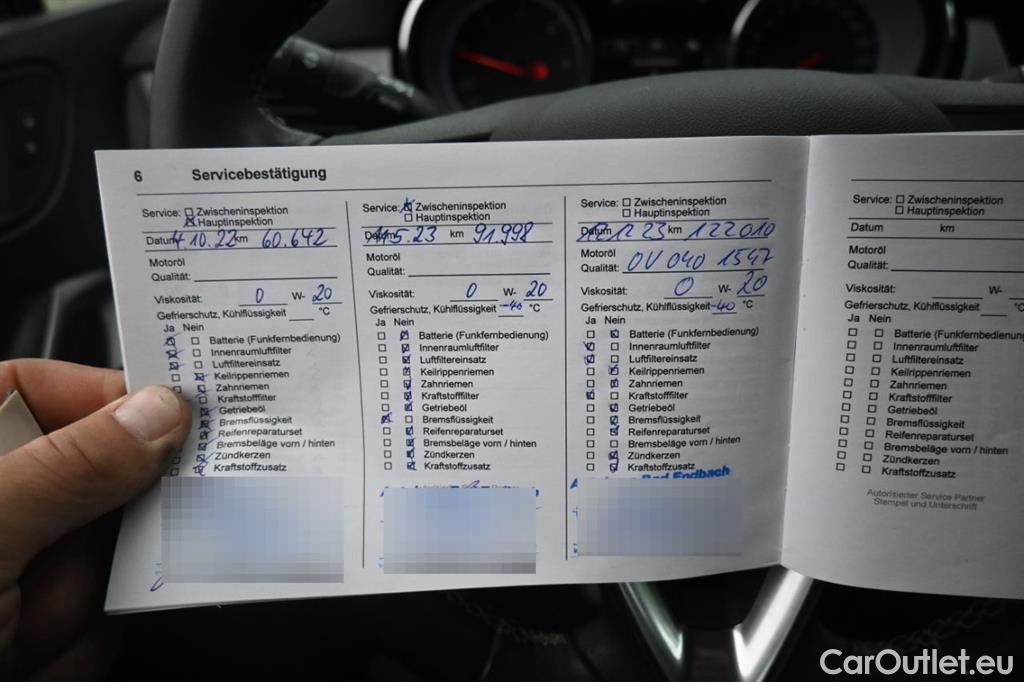 6 Servicebestätigung
Service: Zwischeninspektion
Hauptinspektion
Datum 4.10.22 km 60.642
Motoröl
Qualität:
Viskosität: 0 W- 20
Gefrierschutz, Kühlflüssigkeit °C
Ja Nein
Batterie (Funkfernbedienung)
Innenraumluftfilter
Luftfiltereinsatz
Keilrippenriemen
Zahnriemen
Kraftstofffilter
Getriebeöl
Bremsflüssigkeit
Reifenreparaturset
Bremsbeläge vorn / hinten
Zündkerzen
Kraftstoffzusatz
Service: Zwischeninspektion
Hauptinspektion
Datum 5.23 km 91.998
Motoröl
Qualität:
Viskosität: 0 W- 20
Gefrierschutz, Kühlflüssigkeit -40 °C
Ja Nein
Batterie (Funkfernbedienung)
Innenraumluftfilter
Luftfiltereinsatz
Keilrippenriemen
Zahnriemen
Kraftstofffilter
Getriebeöl
Bremsflüssigkeit
Reifenreparaturset
Bremsbeläge vorn / hinten
Zündkerzen
Kraftstoffzusatz
Service: Zwischeninspektion
Hauptinspektion
Datum 12 23 km 122010
Motoröl
Qualität: OV 040 1547
Viskosität: 0 W- 20
Gefrierschutz, Kühlflüssigkeit -40 °C
Ja Nein
Batterie (Funkfernbedienung)
Innenraumluftfilter
Luftfiltereinsatz
Keilrippenriemen
Zahnriemen
Kraftstofffilter
Getriebeöl
Bremsflüssigkeit
Reifenreparaturset
Bremsbeläge vorn / hinten
Zündkerzen
Kraftstoffzusatz
Bad Endbach
Service: Zwischeninspektion
Hauptinspektion
Datum km
Motoröl
Qualität:
Viskosität: W-
Gefrierschutz, Kühlflüssigkeit
Ja Nein
Batterie (Funkfernbedienung)
Innenraumluftfilter
Luftfiltereinsatz
Keilrippenriemen
Zahnriemen
Kraftstofffilter
Getriebeöl
Bremsflüssigkeit
Reifenreparaturset
Bremsbeläge vorn / hinten
Zündkerzen
Kraftstoffzusatz
Autorisierter Service Partner
Stempel und Unterschrift
CarOutlet.eu